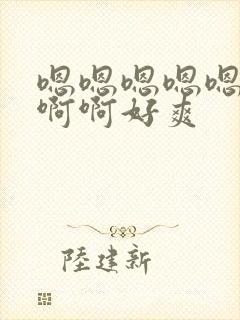 嗯嗯嗯嗯嗯
啊啊好爽
陸建新